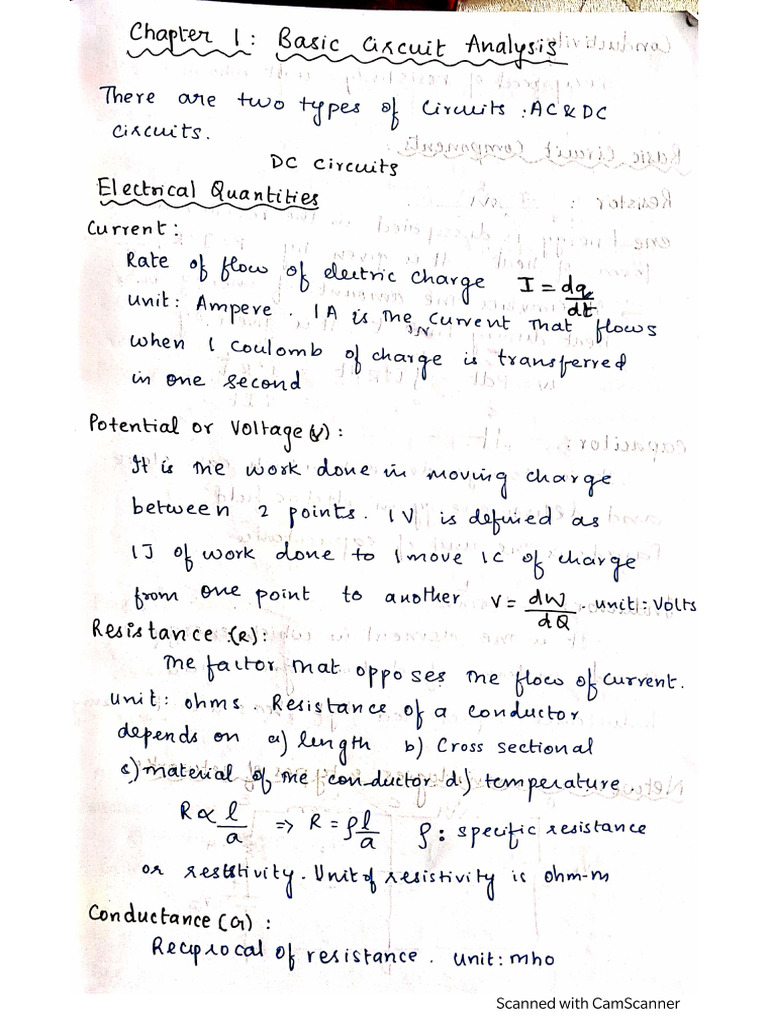 Chapter 1: Basic Circuit Analysis
There are two types of Circuits : AC & DC
circuits.
DC Circuits
Electrical Quantities
Current:
Rate of flow of electric charge I = dq/dt
unit: Ampere. 1A is the current that flows
in
when 1 Coulomb of charge is transferred
in one second
Potential or Voltage (V):
It is the work done in moving charge
between 2 points. 1V is defined as
1J of work done to move 1C of charge
from one point to another V = dW/dQ . unit: Volts
Resistance (R):
The factor that opposes the flow of current.
Unit: ohms. Resistance of a conductor
depends on a) length b) Cross sectional
c) material of the conductor d) temperature.
R ∝ l/a ⇒ R = ρl/a ρ: specific resistance
or resistivity. Unit of resistivity is ohm-m
Conductance (G):
Reciprocal of resistance. unit: mho
Scanned with CamScanner